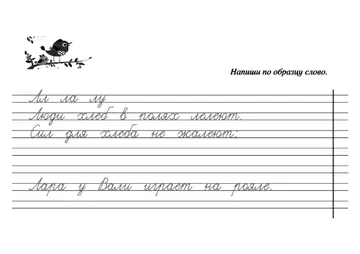 Напиши по образцу слово.
Ал ла лу
Люди хлеб в полях лелеют.
Сил для хлеба не жалеют;
Лара у Вали играет на рояле.